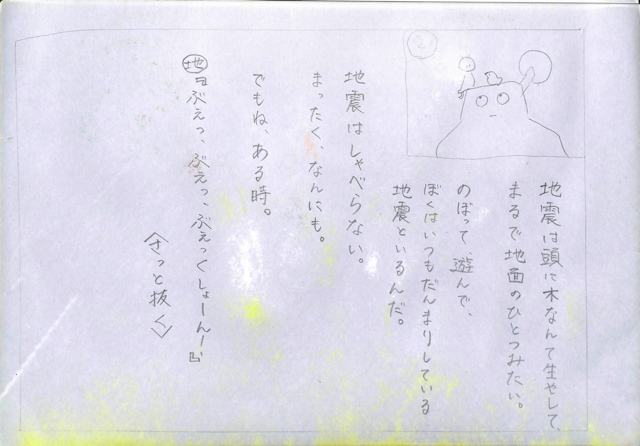 ②
地震は頭に木なんて生やして、
まるで地面のひとつみたい。
のぼって遊んで、
ぼくはいつもだんまりしている
地震といるんだ。
地震はしゃべらない。
まったく、なんにも。
でもね、ある時。
地『ぶえっ、ぶえっ、ぶえっくしょーんー』
〈さっと抜く〉